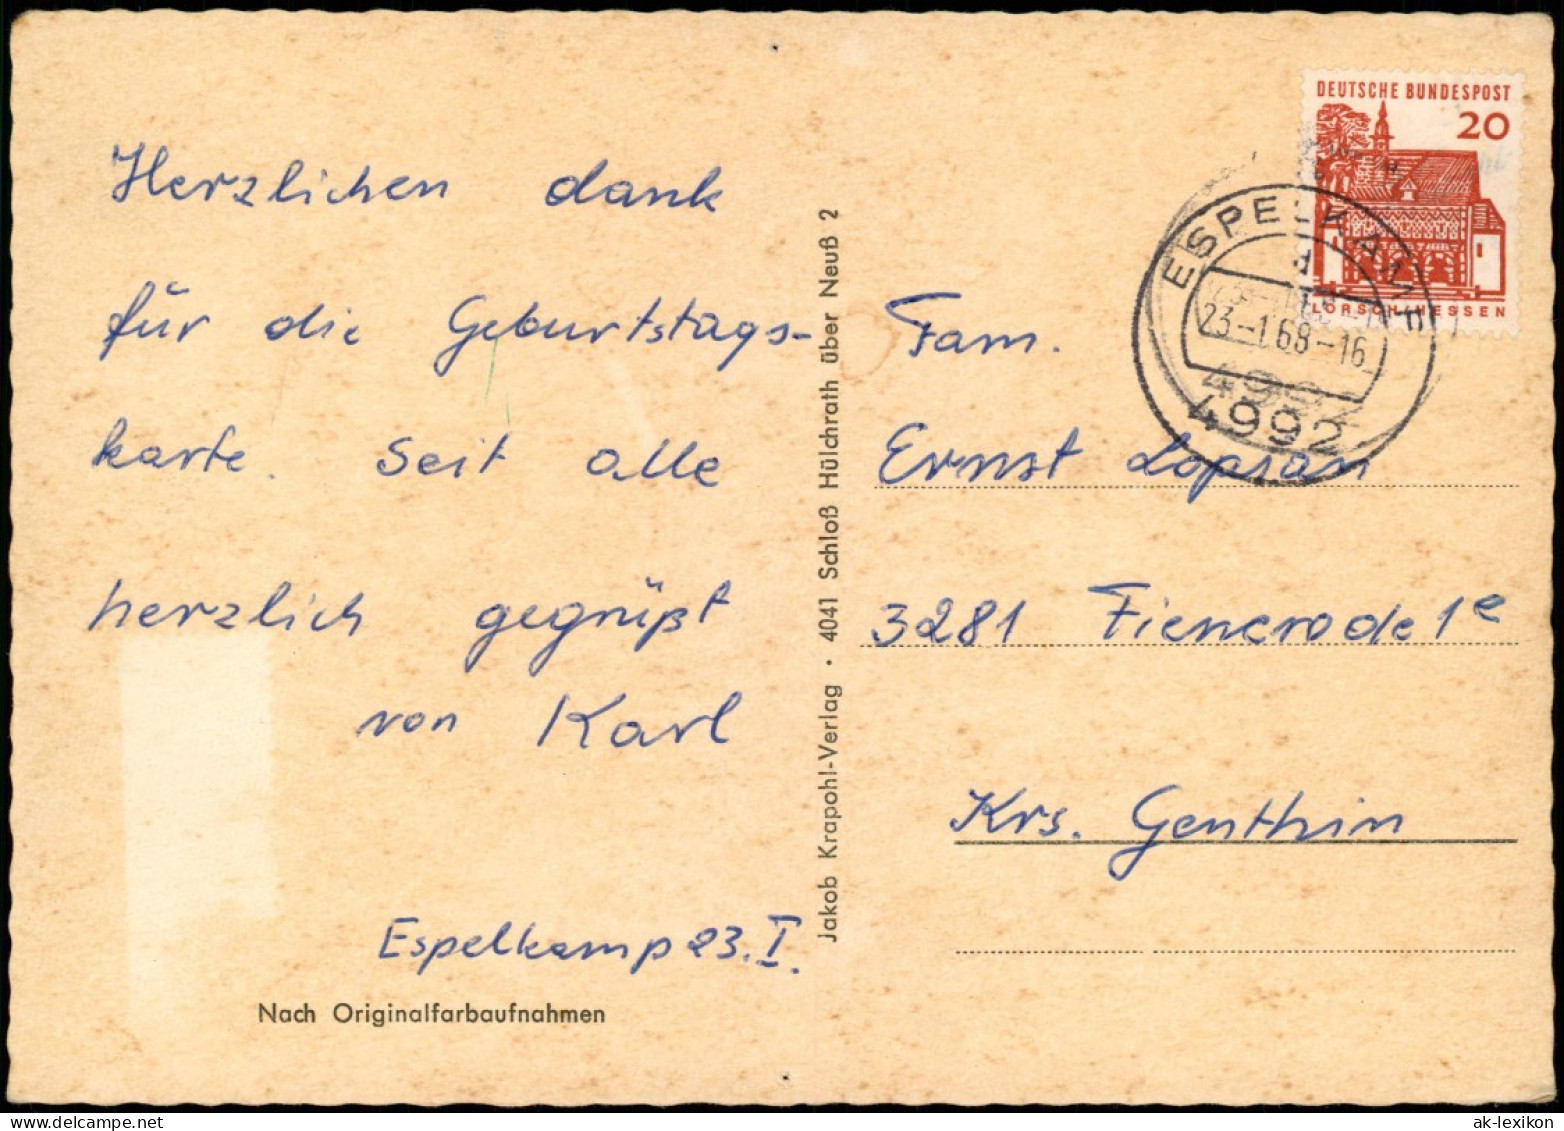 Herzlichen dank
für die Geburtstags-
karte. Seit alle
herzlich gegrüßt
von Karl
Espelkamp 23. I.
Nach Originalfarbaufnahmen
Jakob Krapohl-Verlag · 4041 Schloß Hülchrath über Neuß 2
DEUTSCHE BUNDESPOST
20
LORSCH/HESSEN
ESPELKAMP
d
23.-1.68-16
4992
Fam.
Ernst Lopsan
3281 Fienerode 1e
Krs. Genthin
ak-lexikon